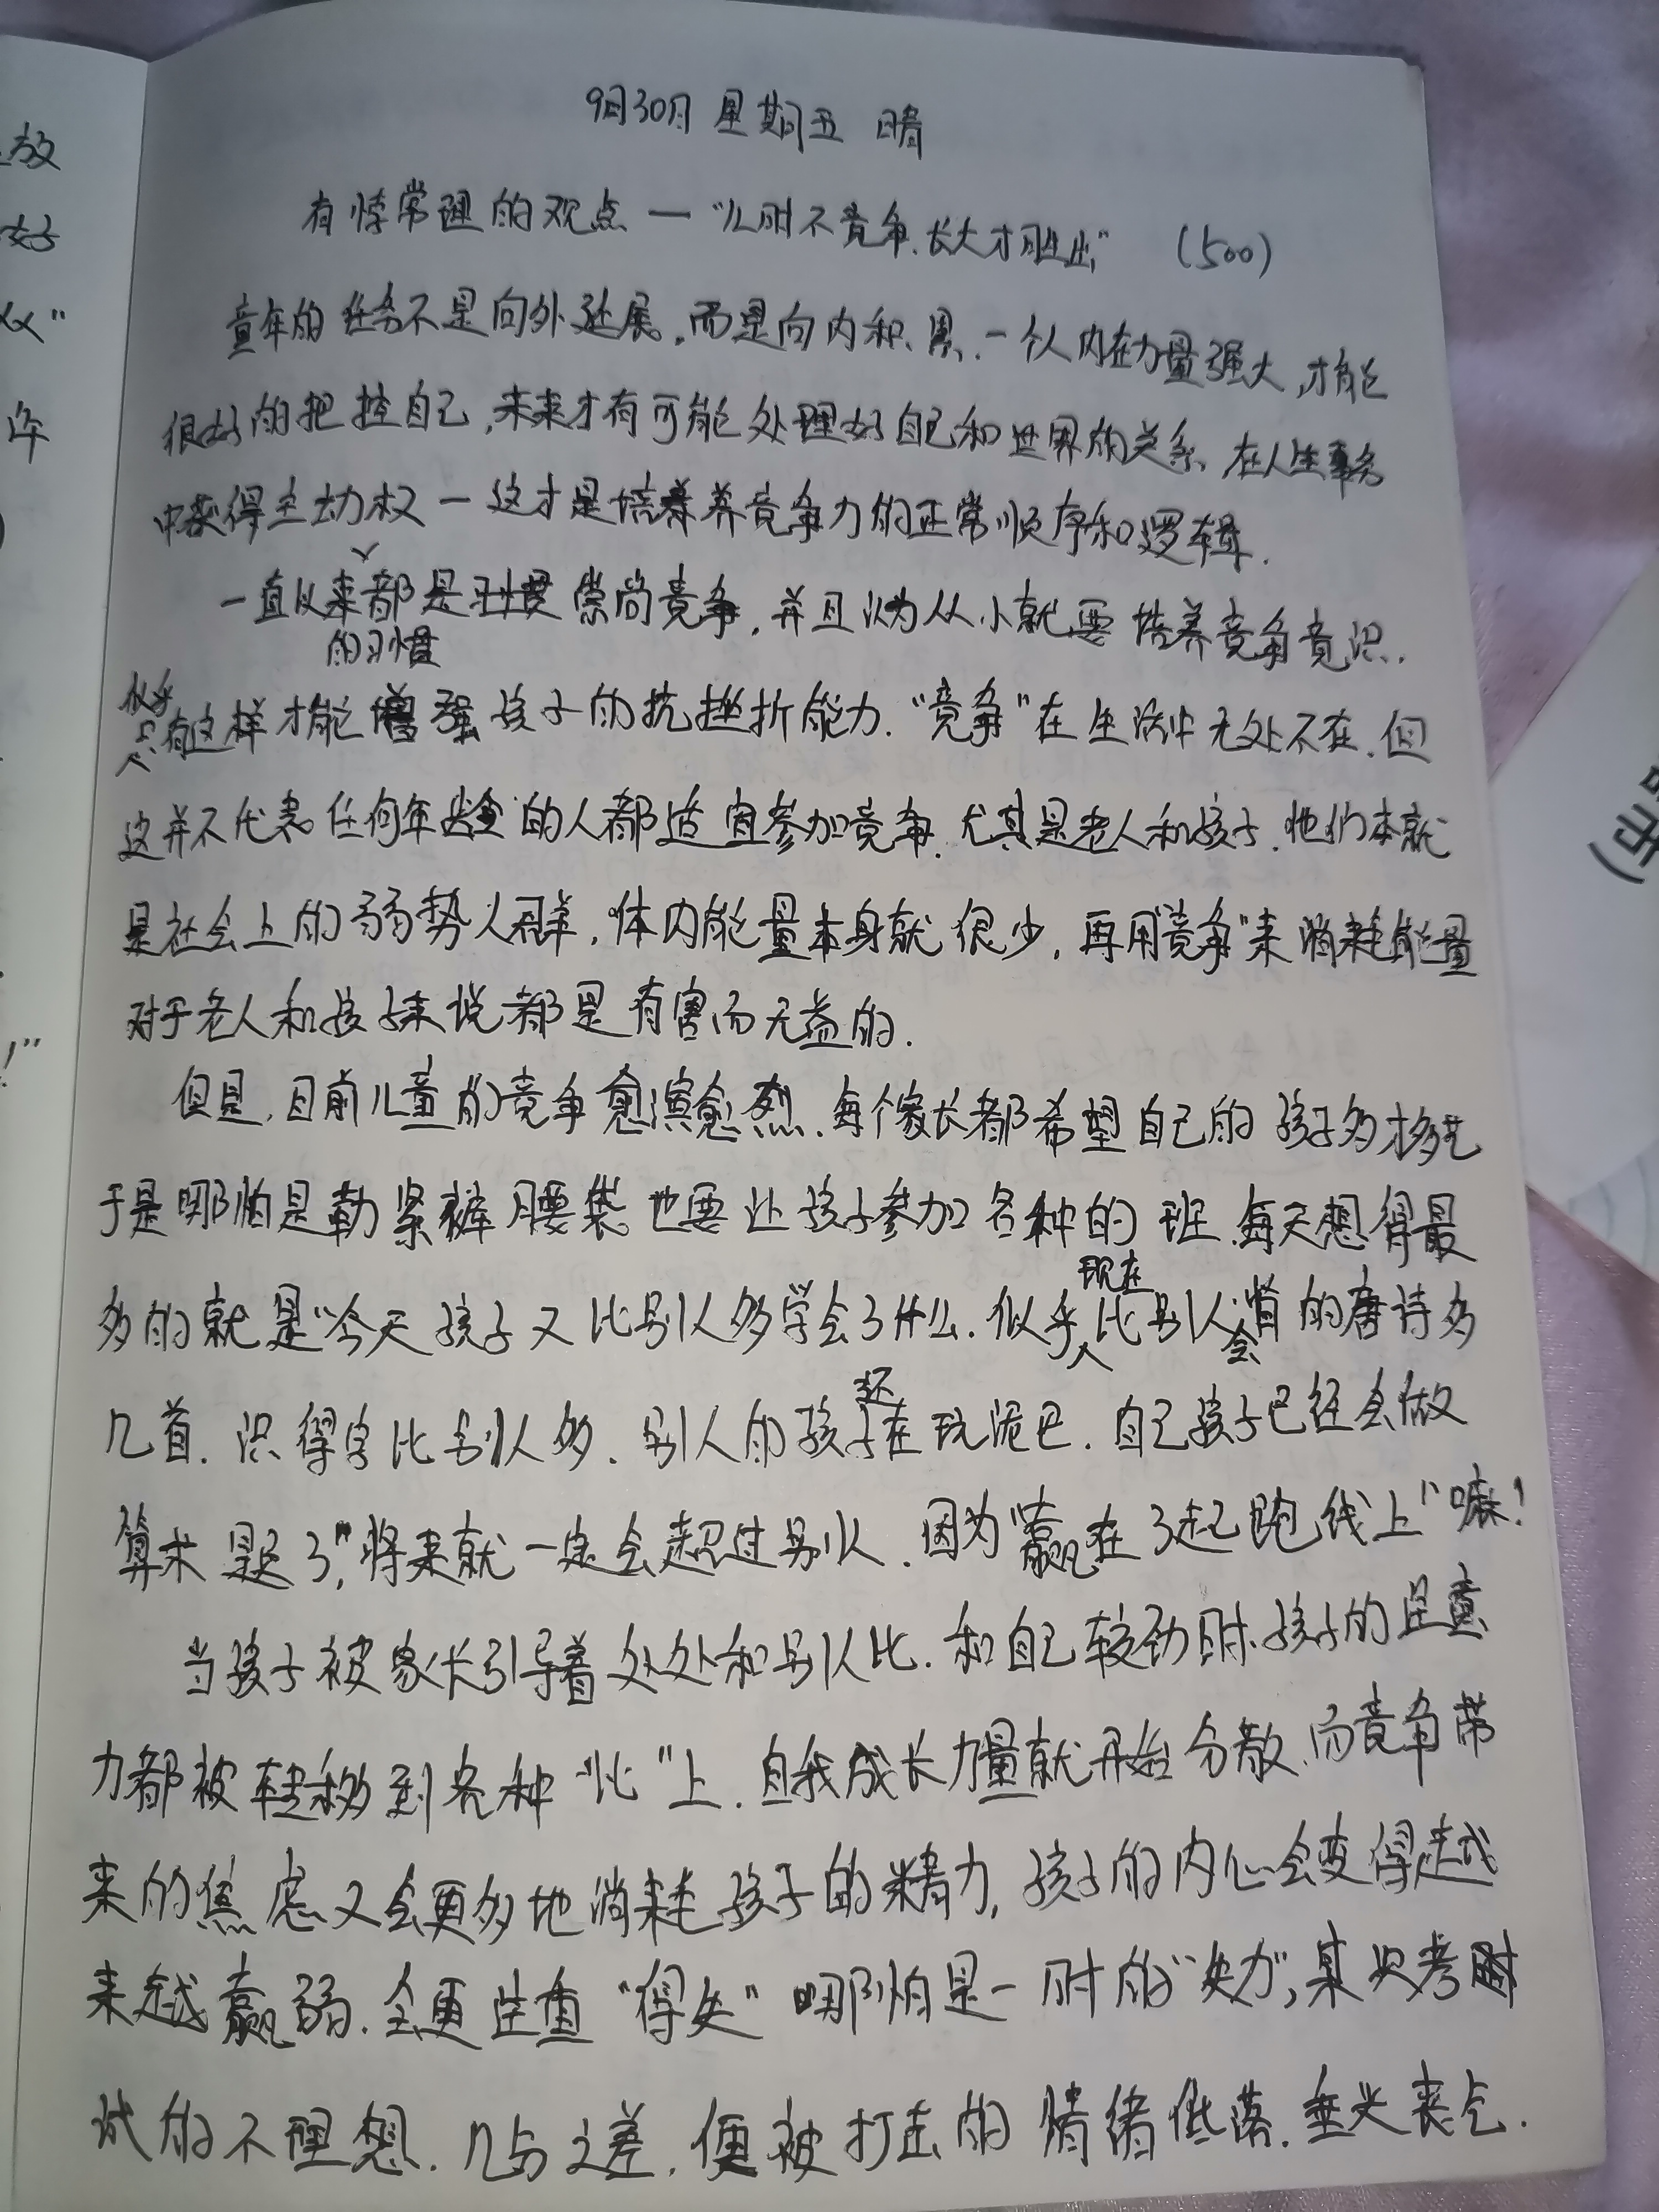 9月30日 星期五 晴
有悖常理的观点 — "儿时不竞争,长大才胜出" (500)
童年的任务不是向外延展,而是向内积累.一个人内在力量强大,才能
很好的把控自己,未来才有可能处理好自己和世界的关系,在人生事务
中获得主动权 — 这才是培养竞争力的正常顺序和逻辑.
一直以来的习惯都是崇尚竞争,并且认为从小就要培养竞争意识.
似乎只有这样才能增强孩子的抗挫折能力."竞争"在生活中无处不在.但
这并不代表任何年龄的人都适宜参加竞争.尤其是老人和孩子.他们本就
是社会上的弱势人群,体内能量本身就很少,再用"竞争"来消耗能量
对于老人和孩子来说都是有害而无益的.
但是,目前儿童的竞争愈演愈烈.每个家长都希望自己的孩子多才多艺
于是哪怕是勒紧裤腰袋也要让孩子参加各种的班.每天想得最
多的就是"今天孩子又比别人多学会了什么.似乎现在比别人会背的唐诗多
几首.识得字比别人多.别人的孩子还在玩泥巴.自己孩子已经会做
算术题了",将来就一定会超过别人.因为"赢在了起跑线上"嘛!
当孩子被家长引导着处处和别人比.和自己较劲时.孩子的注意
力都被转移到各种"比"上.自我成长力量就开始分散.而竞争带
来的焦虑又会更多地消耗孩子的精力,孩子的内心会变得越
来越羸弱.会更注重"得失"哪怕是一时的"失力",某次考
试的不理想.几分之差.便被打击的情绪低落.垂头丧气.
放
好
年
!"